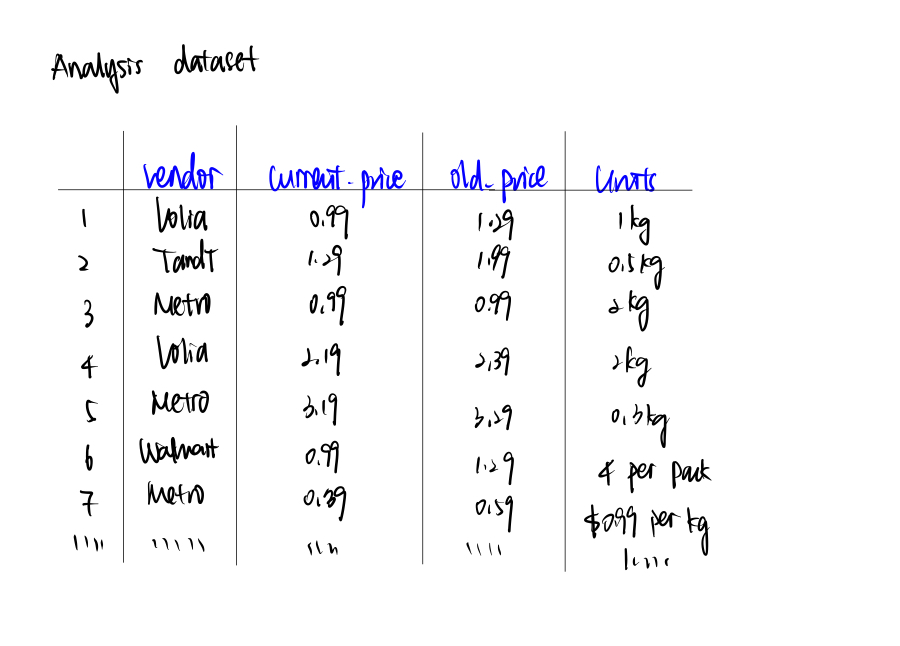 Analysis dataset
vendor current_price old_price Units
1 Volia 0.99 1.29 1kg
2 TandT 1.29 1.99 0.5kg
3 Metro 0.99 0.99 2kg
4 Volia 2.19 2.39 2kg
5 Metro 3.19 3.29 0.3kg
6 Walmart 0.99 1.29 4 per pack
7 Metro 0.39 0.59 $0.99 per kg